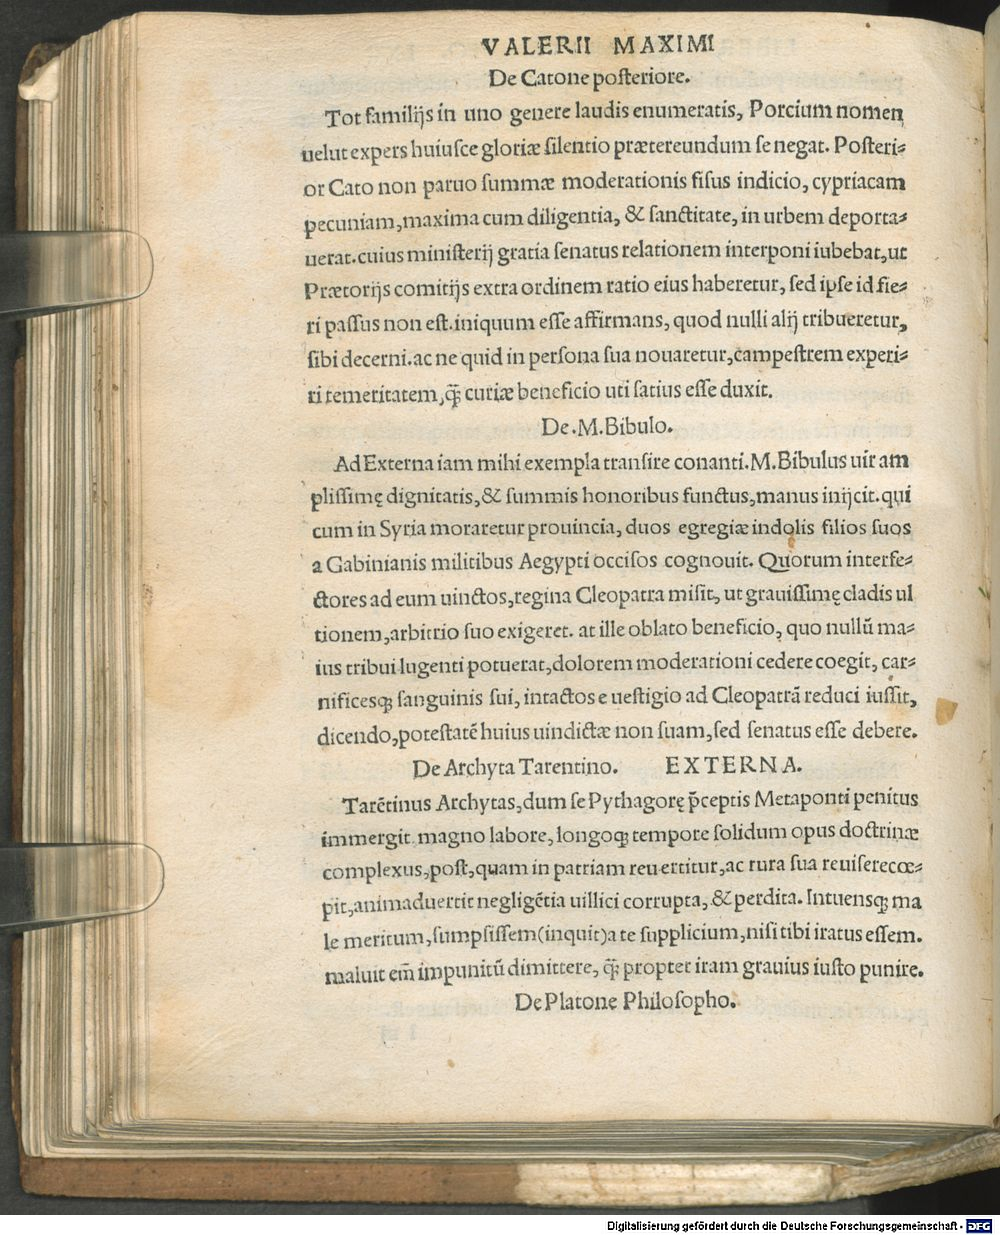 VALERII MAXIMI
De Catone posteriore.
Tot familijs in uno genere laudis enumeratis, Porcium nomen
uelut expers huiusce gloriæ silentio prætereundum se negat. Posteri-
or Cato non paruo summæ moderationis fisus indicio, cypriacam
pecuniam, maxima cum diligentia, & sanctitate, in urbem deporta-
uerat. cuius ministerij gratia senatus relationem interponi iubebat, ut
Prætorijs comitijs extra ordinem ratio eius haberetur, sed ipse id fie-
ri passus non est. iniquum esse affirmans, quod nulli alij tribueretur,
sibi decerni. ac ne quid in persona sua nouaretur, campestrem experi-
ri temeritatem, q̃ȝ curiæ beneficio uti satius esse duxit.
De .M. Bibulo.
Ad Externa iam mihi exempla transire conanti. M. Bibulus uir am
plissimę dignitatis, & summis honoribus functus, manus inijcit. qui
cum in Syria moraretur prouincia, duos egregiæ indolis filios suos
a Gabinianis militibus Aegypti occisos cognouit. Quorum interfe-
ctores ad eum uinctos, regina Cleopatra misit, ut grauissimę cladis ul
tionem, arbitrio suo exigeret. at ille oblato beneficio, quo nullũ ma-
ius tribui lugenti potuerat, dolorem moderationi cedere coegit, car-
nificesqȝ sanguinis sui, intactos e uestigio ad Cleopatrã reduci iussit,
dicendo, potestatẽ huius uindictæ non suam, sed senatus esse debere.
De Archyta Tarentino. EXTERNA.
Tarẽtinus Archytas, dum se Pythagorę p̃ceptis Metaponti penitus
immergit magno labore, longoqȝ tempore solidum opus doctrinæ
complexus, post, quam in patriam reuertitur, ac rura sua reuiserecœ-
pit, animaduertit negligẽtia uillici corrupta, & perdita. Intuensqȝ ma
le meritum, sumpsissem (inquit) a te supplicium, nisi tibi iratus essem.
maluit em̃ impunitũ dimittere, q̃ȝ propter iram grauius iusto punire.
De Platone Philosopho.
Digitalisierung gefördert durch die Deutsche Forschungsgemeinschaft - DFG